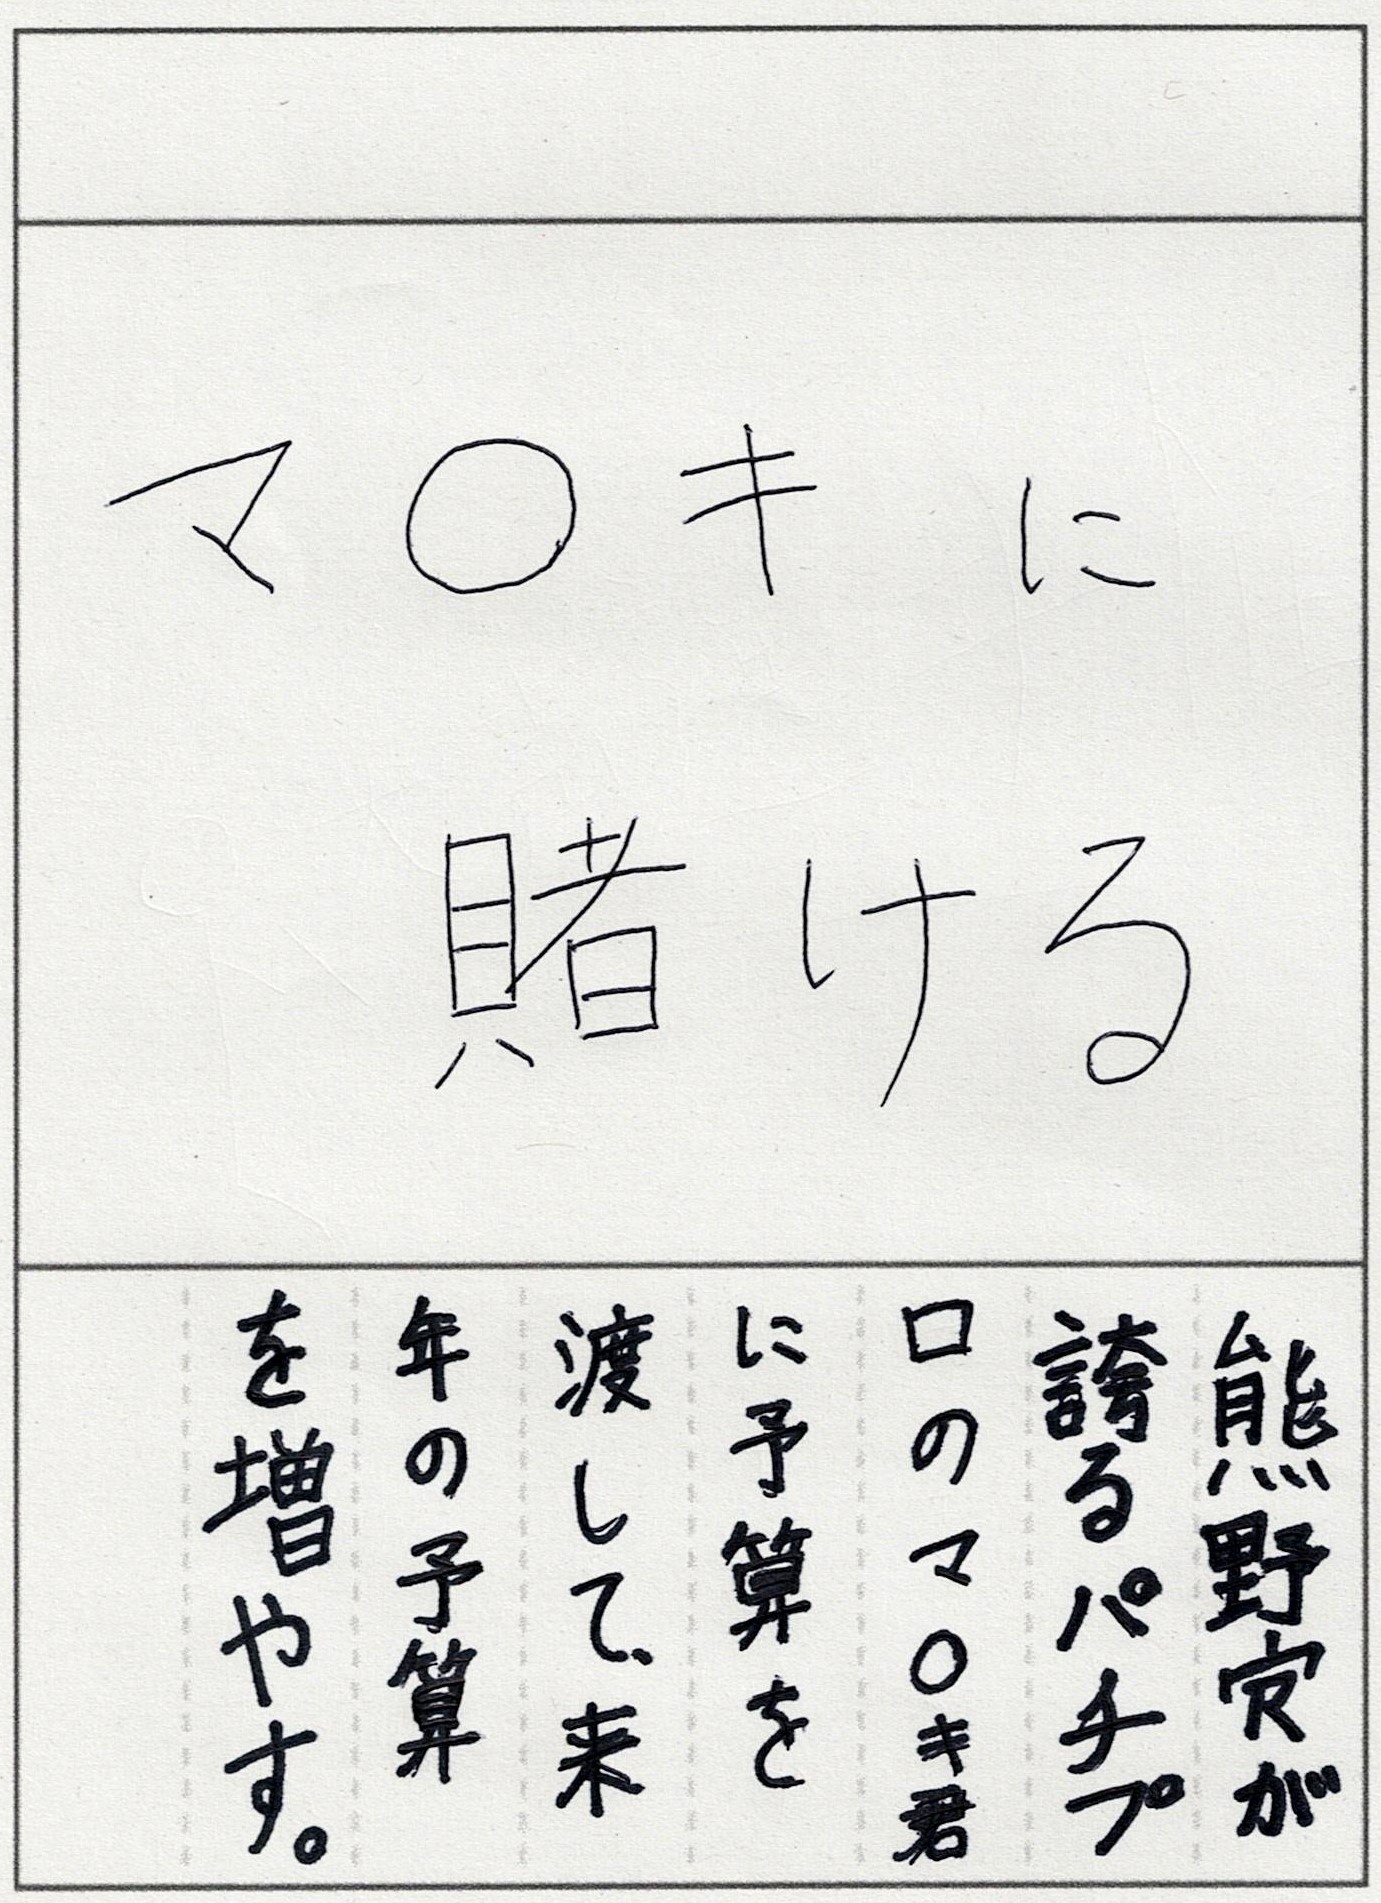 マ○キに
賭ける
熊野寮が
誇るパチプ
ロのマ○キ君
に予算を
渡して、来
年の予算
を増やす。